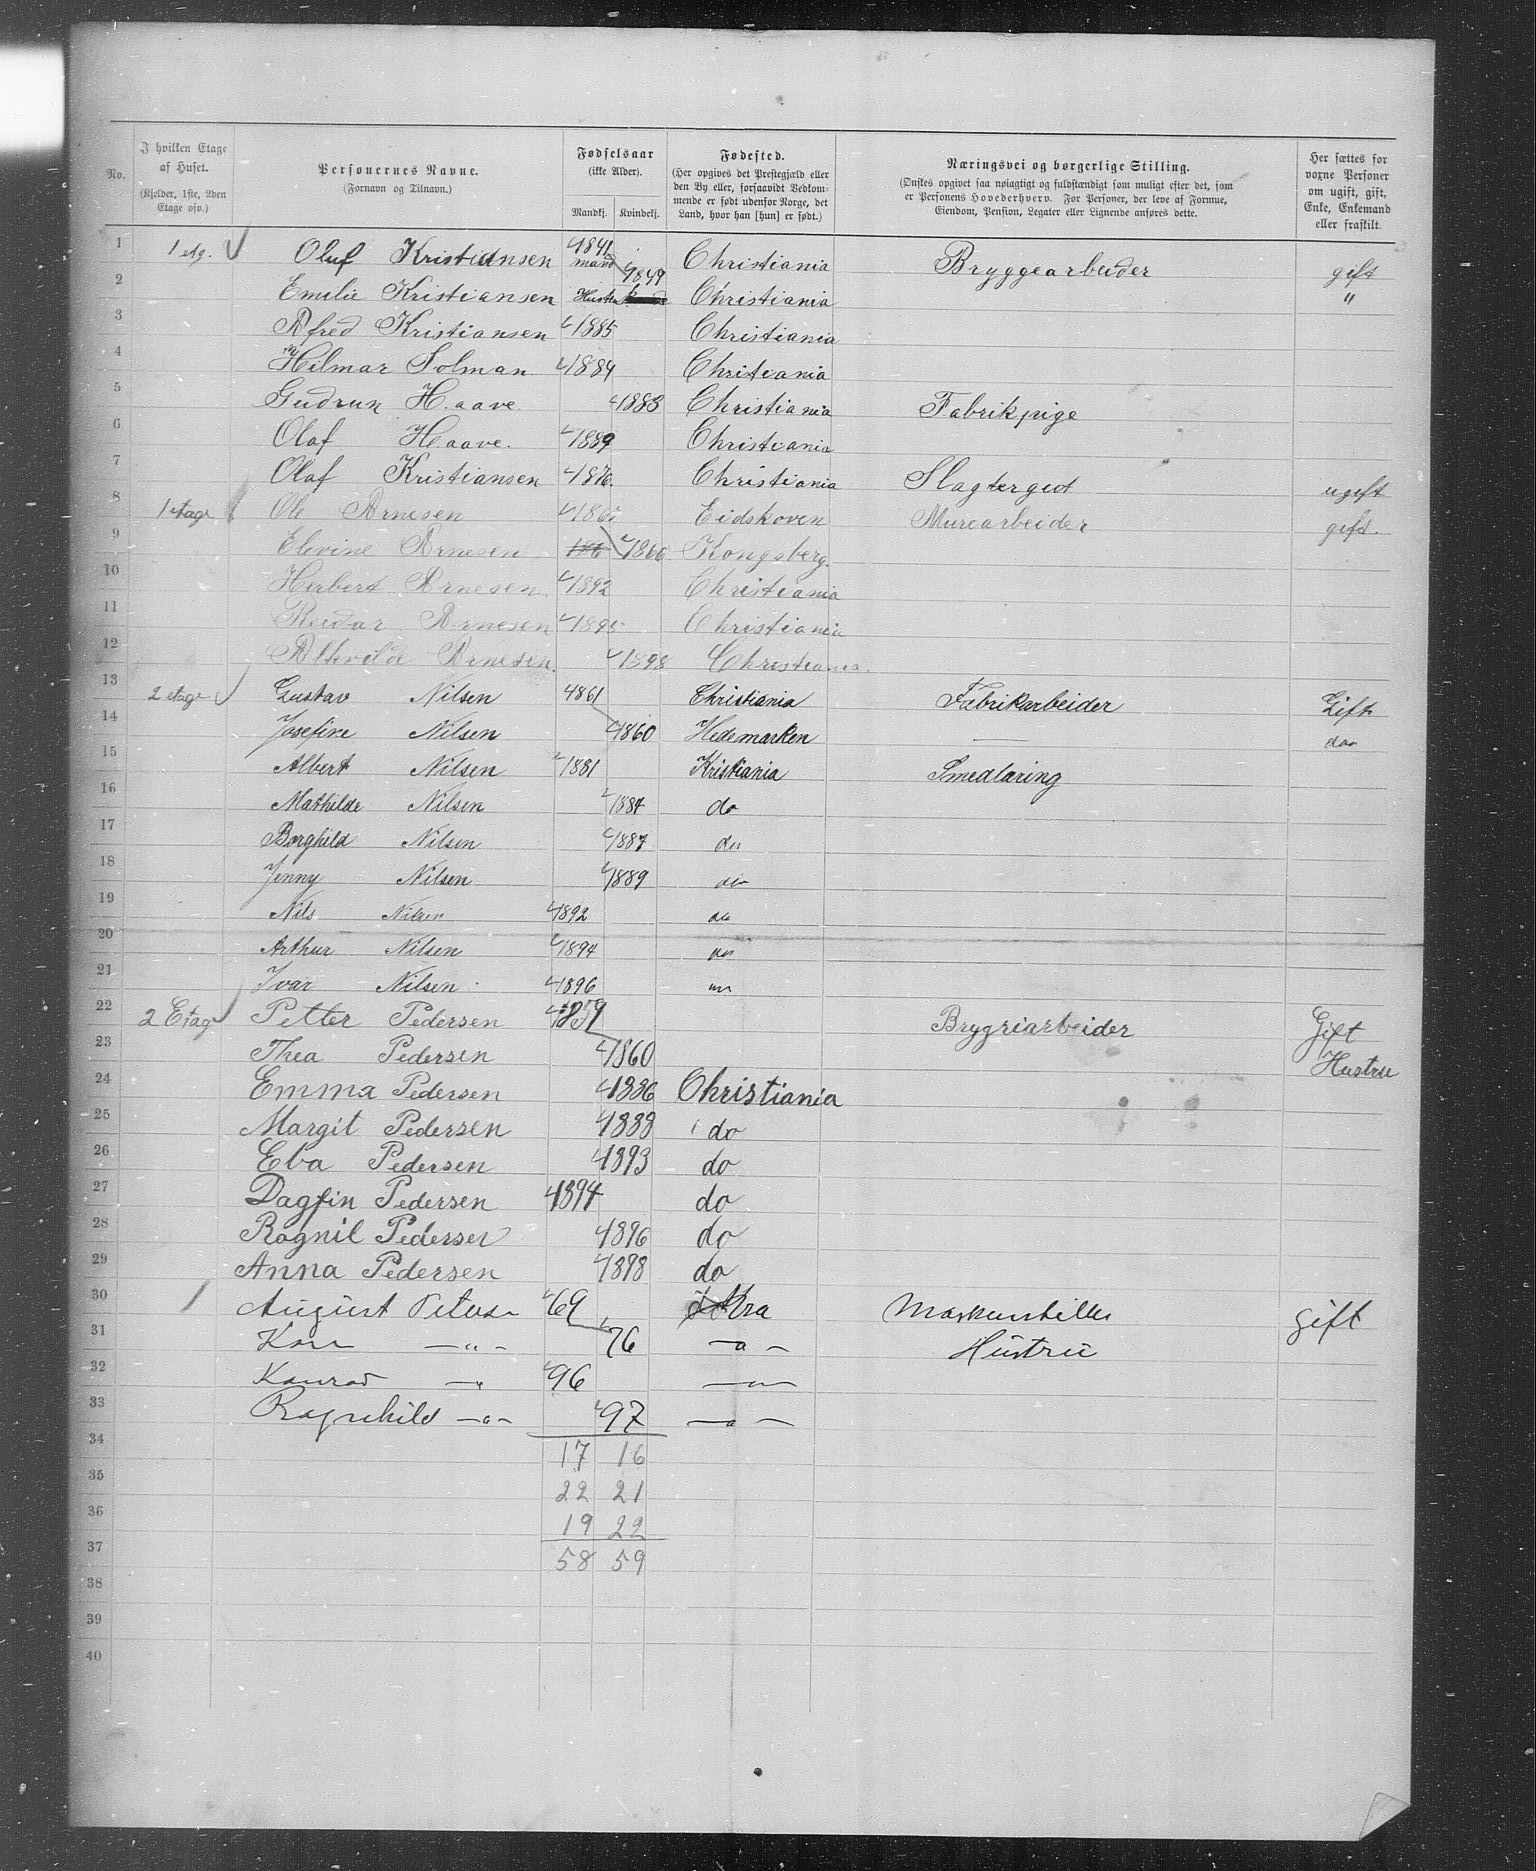 No. | I hvilken Etage af Huset. (Kjelder, 1ste, 2den Etage osv.) | Personernes Navne. (Fornavn og Tilnavn.) | Fødselsaar (ikke Alder). Mandkj. Kvindekj. | Fødested. (Her opgives det Prestegjæld eller den By eller, forsaavidt Vedkommende er født udenfor Norge, det Land, hvor han [hun] er født.) | Næringsvei og borgerlige Stilling. (Ønskes opgivet saa nøiagtigt og fuldstændigt som muligt efter det, som er Personens Hovederhverv. For Personer, der leve af Formue, Eiendom, Pension, Legater eller Lignende anføres dette. | Her sættes for voxne Personer om ugift, gift, Enke, Enkemand eller fraskilt.
1 1 etg. Oluf Kristiansen 1841 mand Christiania Bryggearbeider gift
2 Emilie Kristiansen Hustru 1849 Christiania "
3 Alfred Kristiansen 1885 Christiania
4 Hilmar Solman 1884 Christiania
5 Gudrun Haave 1883 Christiania Fabrikpige
6 Olaf Haave. 1889 Christiania
7 Olaf Kristiansen 1876. Christiania ugift
8 1 etage Ole Arnesen Eidskoven Murearbeider gift.
9 Elevine Arnesen 1866 Kongsberg.
10 Herbert Arnesen. 1892 Christiania
11 Reidar Arnesen 1895 Christiania
12 Arnesen. 1898 Christiania.
13 2 etage Gustav Nilsen 1861 Christiania Fabrikarbeider Gift
14 Josefine Nilsen 1860 Hedemarken — do
15 Albert Nilsen 1881 Kristiania Smedlæring
16 Mathilde Nilsen 1884 do
17 Borghild Nilsen 1887 do
18 Jenny Nilsen 1889 do
19 Nils Nilsen 1892 do
20 Arthur Nilsen 1894 do
21 Ivar Nilsen 1896 do
22 2 Etag Petter Pedersen 1859 Brygriarbeider Gift
23 Thea Pedersen 1860 Hustru
24 Emma Pedersen 1886 Christiania
25 Margit Pedersen 1888 do
26 Eba Pedersen 1893 do
27 Dagfin Pedersen 1894 do
28 Ragnil Pedersen 1896 do
29 Anna Pedersen 1898 do
30 August 69 Kra gift
31 — " — 76 — " — Hustru
32 Konrad — " 96 — " —
33 Ragnhild — " — 97 — " —
34 17 16
35 22 21
36 19 22
37 58 59
38
39
40